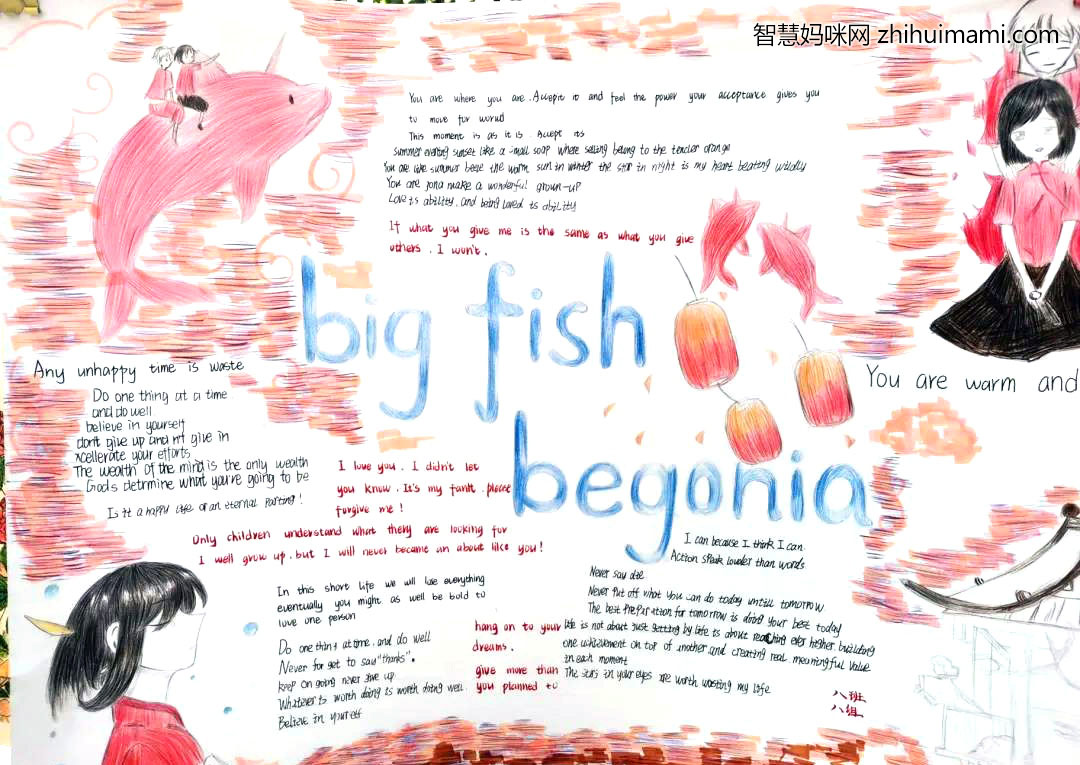 智慧妈咪网 zhihuimami.com
You are where you are. Accept it and feel the power your acceptance gives you
to move for worud
This moment is as it is. Accept its
summer evening sunset like a small soap where selling belong to the tender orange
You are like summer beeze the warm sun in winter the star in night is my heart beating wildly
You are gona make a wonderful grown-up
Love is ability, and being loved is ability
If what you give me is the same as what you give
others, I won't.
big fish
begonia
Any unhappy time is waste
Do one thing at a time
and do well
believe in yourself
don't give up and n't give in
xcellerate your efforts
The wealth of the mind is the only wealth
Gods detrmine what you're going to be
Is it a happy life or an eternal parting!
You are warm and
I love you. I didn't let
you know. It's my fault. please
forgive me!
Only children understand what they are looking for
I well grow up. but I will never became an about like you!
In this short life we will lose everything
eventually you might as well be bold to
love one person
Do one thing atime. and do well
Never for get to say "thanks".
keep on going never give up
Whatever is worth doing is worth doing well.
Believe in yourself
hang on to your
dreams.
give more than
you planned to
I can because I think I can
Action speak louder than words
Never say die
Never put off what you can do today untill tomorrow
The best preparation for tomorrow is doing your best today
life is not about just getting by life is about reaching ever higher building
one achievement on top of another and creating real meaningful value
in each moment
The stars in your eyes are worth wasting my life
八班
八组